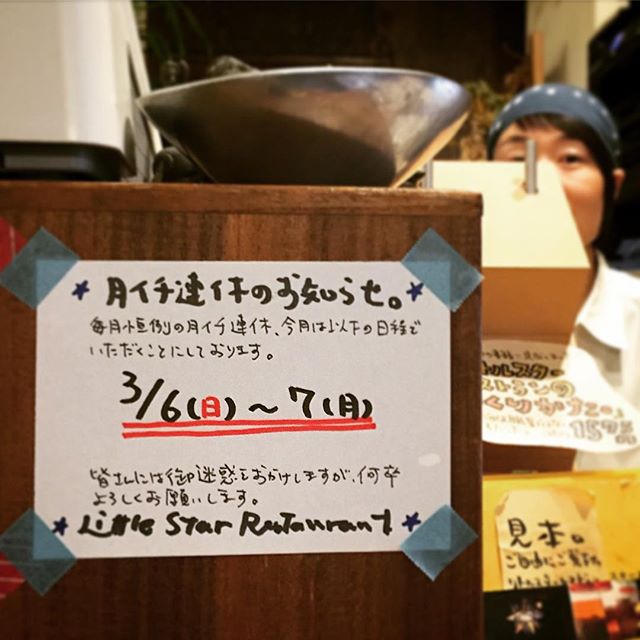 月イチ連休のお知らせ。
毎月恒例の月イチ連休、今月は以下の日程で
いただくことにしております。
3/6(日)~7(月)
皆さんには御迷惑をおかけしますが、何卒
よろしくお願いします。
Little Star Restaurant
トルスター
ストランの
くりかた。」
1575円
見本。
ご自由にご覧